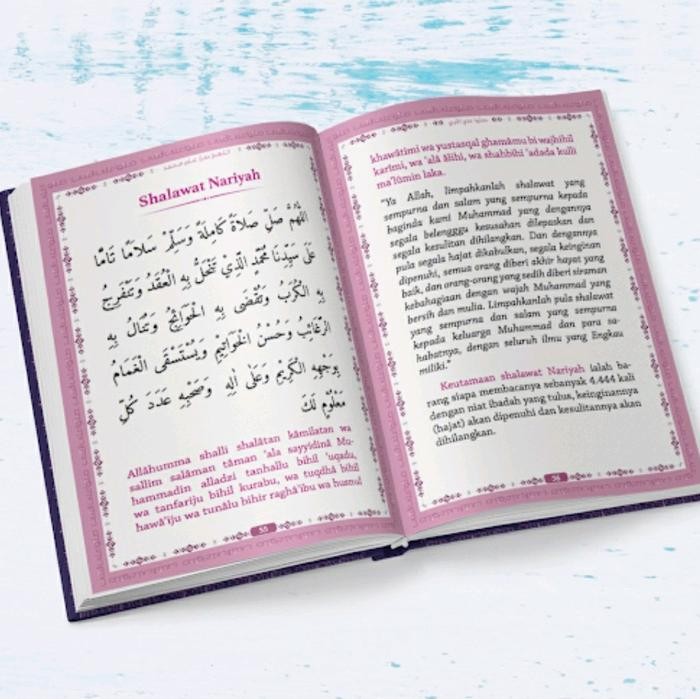 Shalawat Nariyah
اللهم صَلِّ صَلَاةً كَامِلَةً وَسَلِّمْ سَلَامًا تَامًّا
عَلَى سَيِّدِنَا مُحَمَّدٍ الَّذِي تَنْحَلُّ بِهِ الْعُقَدُ وَتَنْفَرِجُ
بِهِ الْكُرَبُ وَتُقْضَى بِهِ الْحَوَائِجُ وَتُنَالُ بِهِ
الرَّغَائِبُ وَحُسْنُ الْخَوَاتِيْمِ وَيُسْتَسْقَى الْغَمَامُ
بِوَجْهِهِ الْكَرِيْمِ وَعَلَى اٰلِهِ وَصَحْبِهِ عَدَدَ كُلِّ
مَعْلُوْمٍ لَكَ
Allâhumma shalli shalâtan kâmilatan wa
sallim salâman tâman 'ala sayyidinâ Mu-
hammadin alladzi tanhallu bihil 'uqadu,
wa tanfariju bihil kurabu, wa tuqdhâ bihil
hawâ'iju wa tunâlu bihir raghâ'ibu wa husnul
55
khawâtimi wa yustasqal ghamâmu bi wajhihil
karîmi, wa 'alâ âlihi, wa shahbihi 'adada kulli
ma'lûmin laka.
"Ya Allah, limpahkanlah shalawat yang
sempurna dan salam yang sempurna kepada
baginda kami Muhammad yang dengannya
segala belengggu kesusahan dilepaskan dan
segala kesulitan dihilangkan. Dan dengannya
pula segala hajat dikabulkan, segala keinginan
dipenuhi, semua orang diberi akhir hayat yang
baik, dan orang-orang yang sedih diberi siraman
kebahagiaan dengan wajah Muhammad yang
bersih dan mulia. Limpahkanlah pula shalawat
yang sempurna dan salam yang sempurna
kepada keluarga Muhammad dan para sa-
habatnya, dengan seluruh ilmu yang Engkau
miliki."
Keutamaan shalawat Nariyah ialah ba-
rang siapa membacanya sebanyak 4.444 kali
dengan niat ibadah yang tulus, keinginannya
(hajat) akan dipenuhi dan kesulitannya akan
dihilangkan.
56